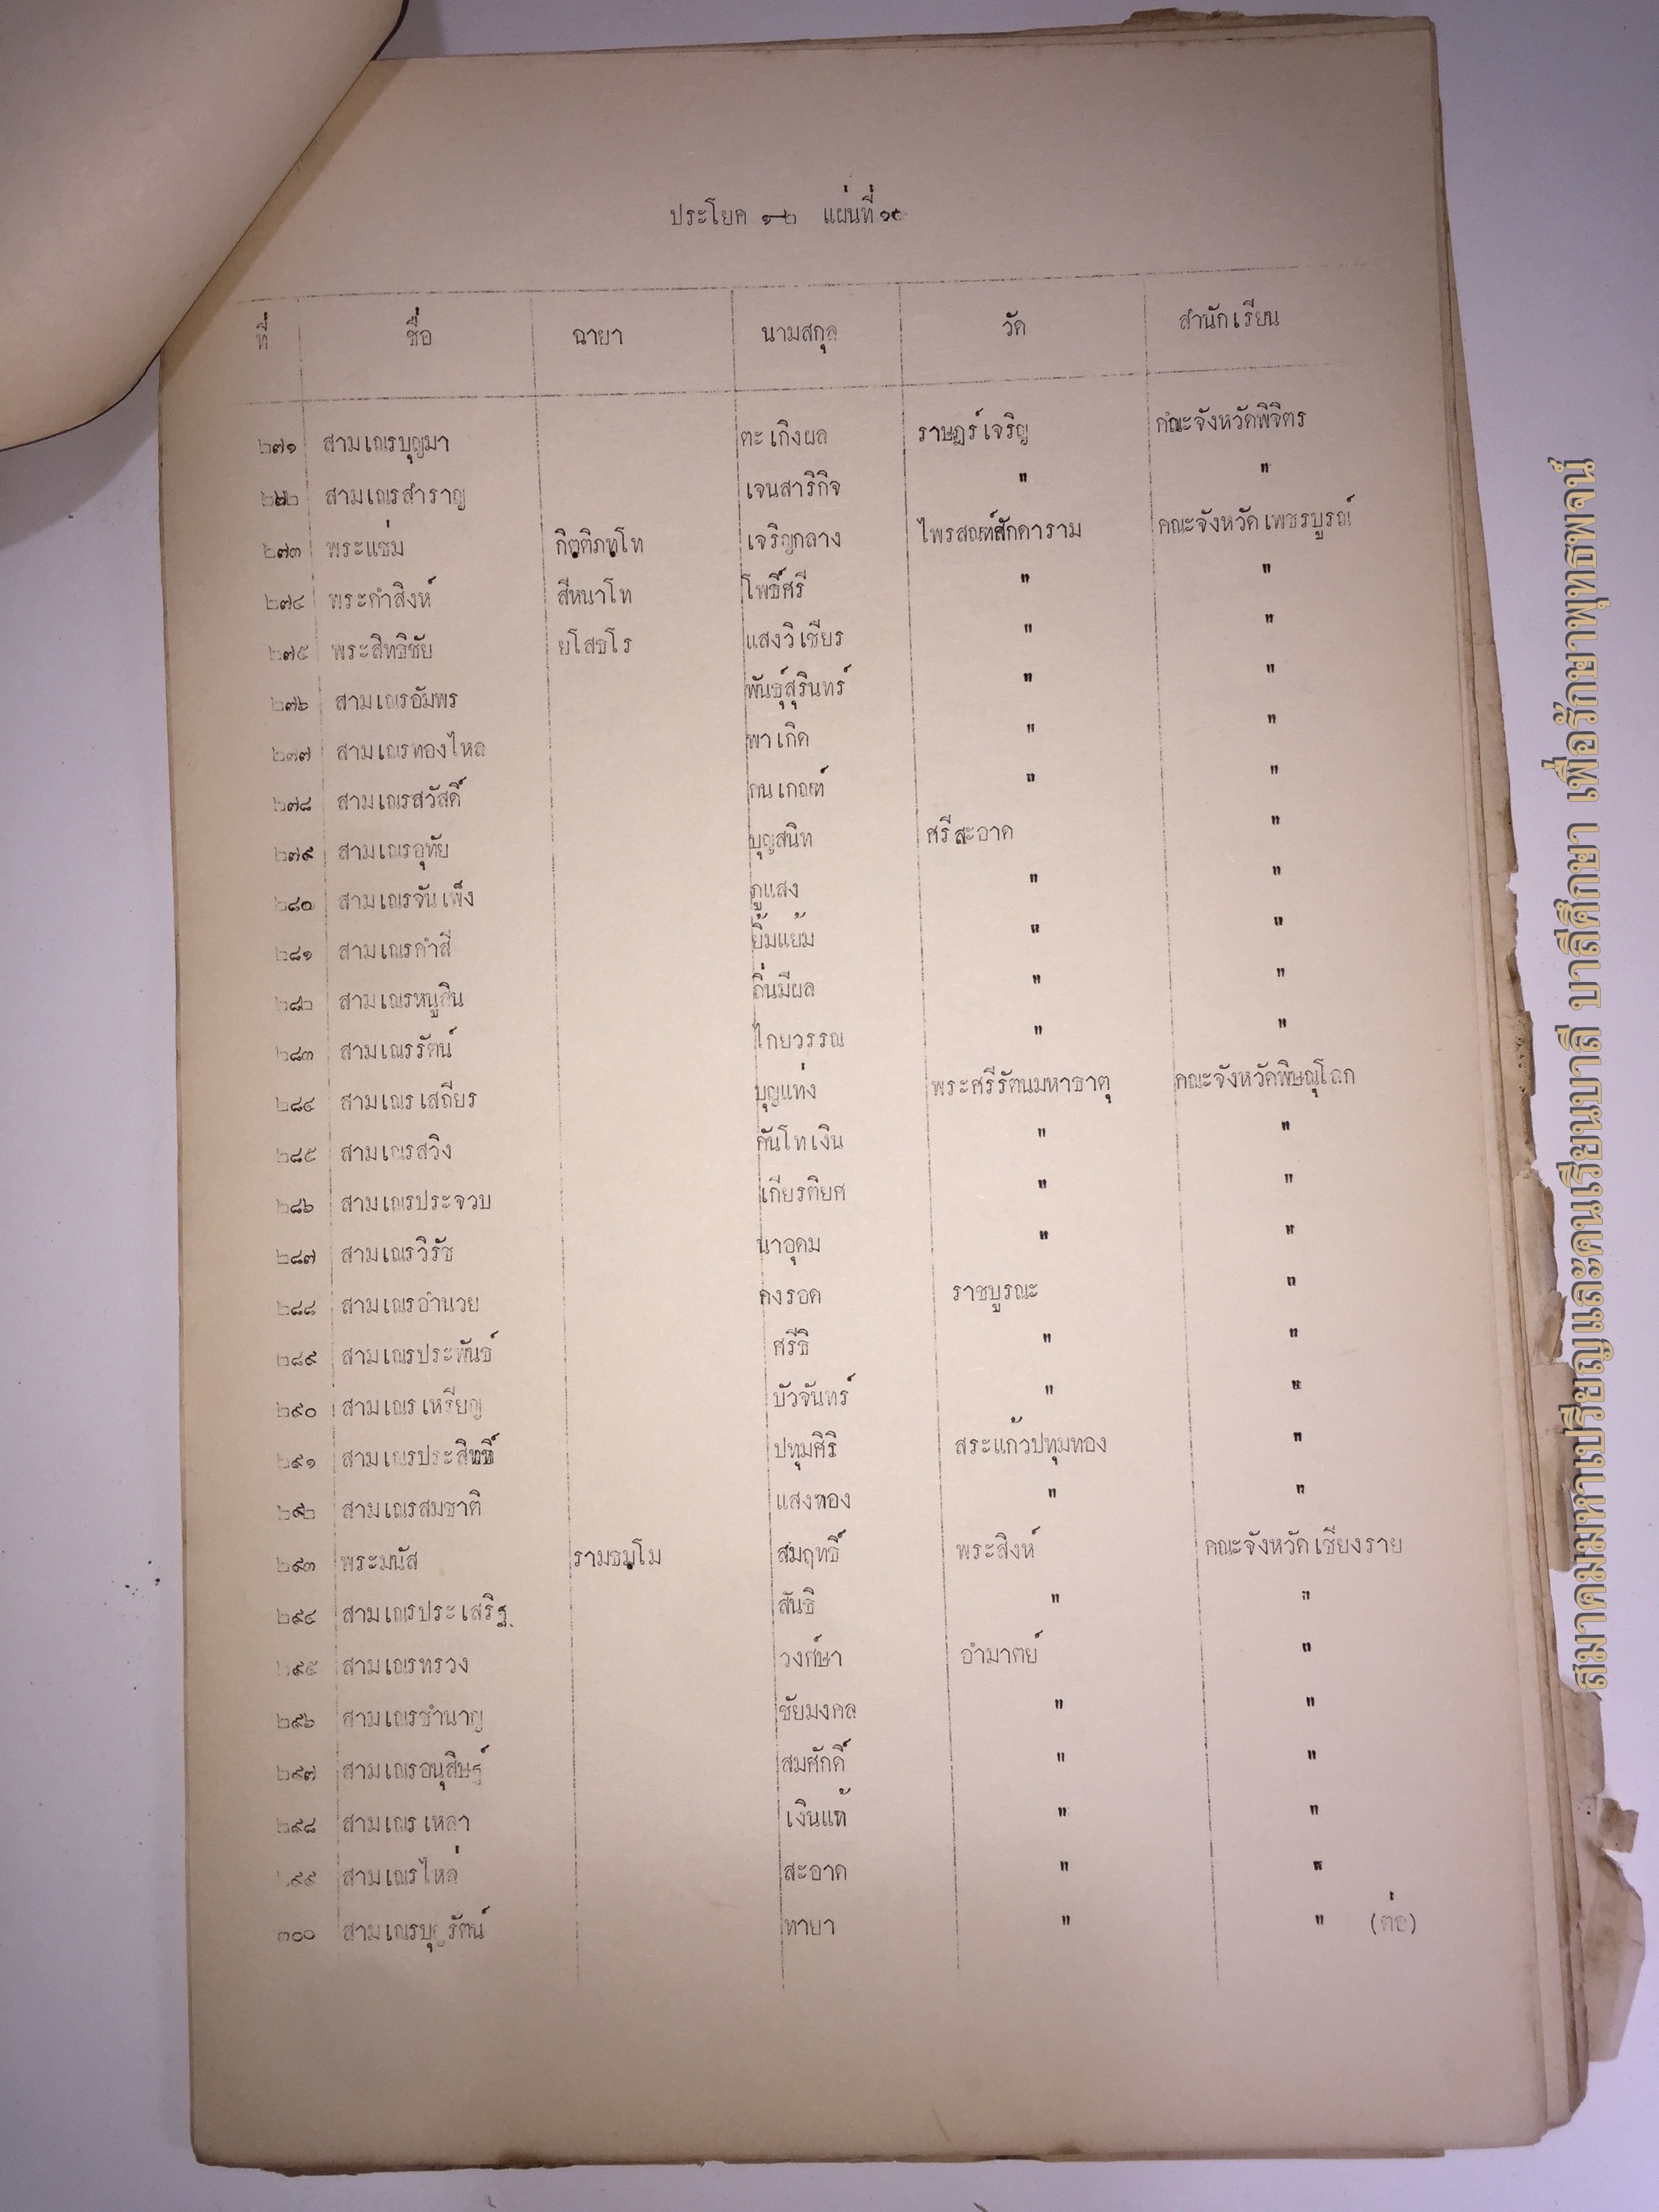 ประโยค ๑-๒ แผ่นที่ ๑๐
ที่ ชื่อ ฉายา นามสกุล วัด สำนักเรียน
๒๗๑ สามเณรบุญมา ตะเกิงผล ราษฎร์เจริญ คณะจังหวัดพิจิตร
๒๗๒ สามเณรสำราญ เจนสาริกิจ " "
๒๗๓ พระแช่ม กิตฺติภทฺโท เจริญกลาง ไพรสณฑ์ศักดาราม คณะจังหวัดเพชรบูรณ์
๒๗๔ พระคำสิงห์ สีหนาโท โพธิ์ศรี " "
๒๗๕ พระสิทธิชัย ยโสธโร แสงวิเชียร " "
๒๗๖ สามเณรอัมพร พันธุ์สุรินทร์ " "
๒๗๗ สามเณรทองไหล พาเกิด " "
๒๗๘ สามเณรสวัสดิ์ คนเกณฑ์ " "
๒๗๙ สามเณรอุทัย บุญสนิท ศรีสะอาด "
๒๘๐ สามเณรจันเพ็ง ภูแสง " "
๒๘๑ สามเณรคำสี ยิ้มแย้ม " "
๒๘๒ สามเณรหนูสิน ถิ่นมีผล " "
๒๘๓ สามเณรรัตน์ ไกยวรรณ " "
๒๘๔ สามเณรเสถียร บุญแท่ง พระศรีรัตนมหาธาตุ คณะจังหวัดพิษณุโลก
๒๘๕ สามเณรสวิง คันโทเงิน " "
๒๘๖ สามเณรประจวบ เกียรติยศ " "
๒๘๗ สามเณรวิรัช นาอุดม " "
๒๘๘ สามเณรอำนวย คงรอด ราชบูรณะ "
๒๘๙ สามเณรประพันธ์ ศรีธิ " "
๒๙๐ สามเณรเหรียญ บัวจันทร์ " "
๒๙๑ สามเณรประสิทธิ์ ปทุมศิริ สระแก้วปทุมทอง "
๒๙๒ สามเณรสมชาติ แสงทอง " "
๒๙๓ พระมนัส รามธมฺโม สมฤทธิ์ พระสิงห์ คณะจังหวัดเชียงราย
๒๙๔ สามเณรประเสริฐ สันธิ " "
๒๙๕ สามเณรทรวง วงศ์ษา อำมาตย์ "
๒๙๖ สามเณรชำนาญ ชัยมงคล " "
๒๙๗ สามเณรอนุสิษฐ์ สมศักดิ์ " "
๒๙๘ สามเณรเหลา เงินแท้ " "
๒๙๙ สามเณรไหล่ สะอาด " "
๓๐๐ สามเณรบุญรัตน์ ทายา " " (ต่อ)
สมาคมมหาเปรียญและคนเรียนบาลี บาลีศึกษา เพื่อรักษาพุทธพจน์